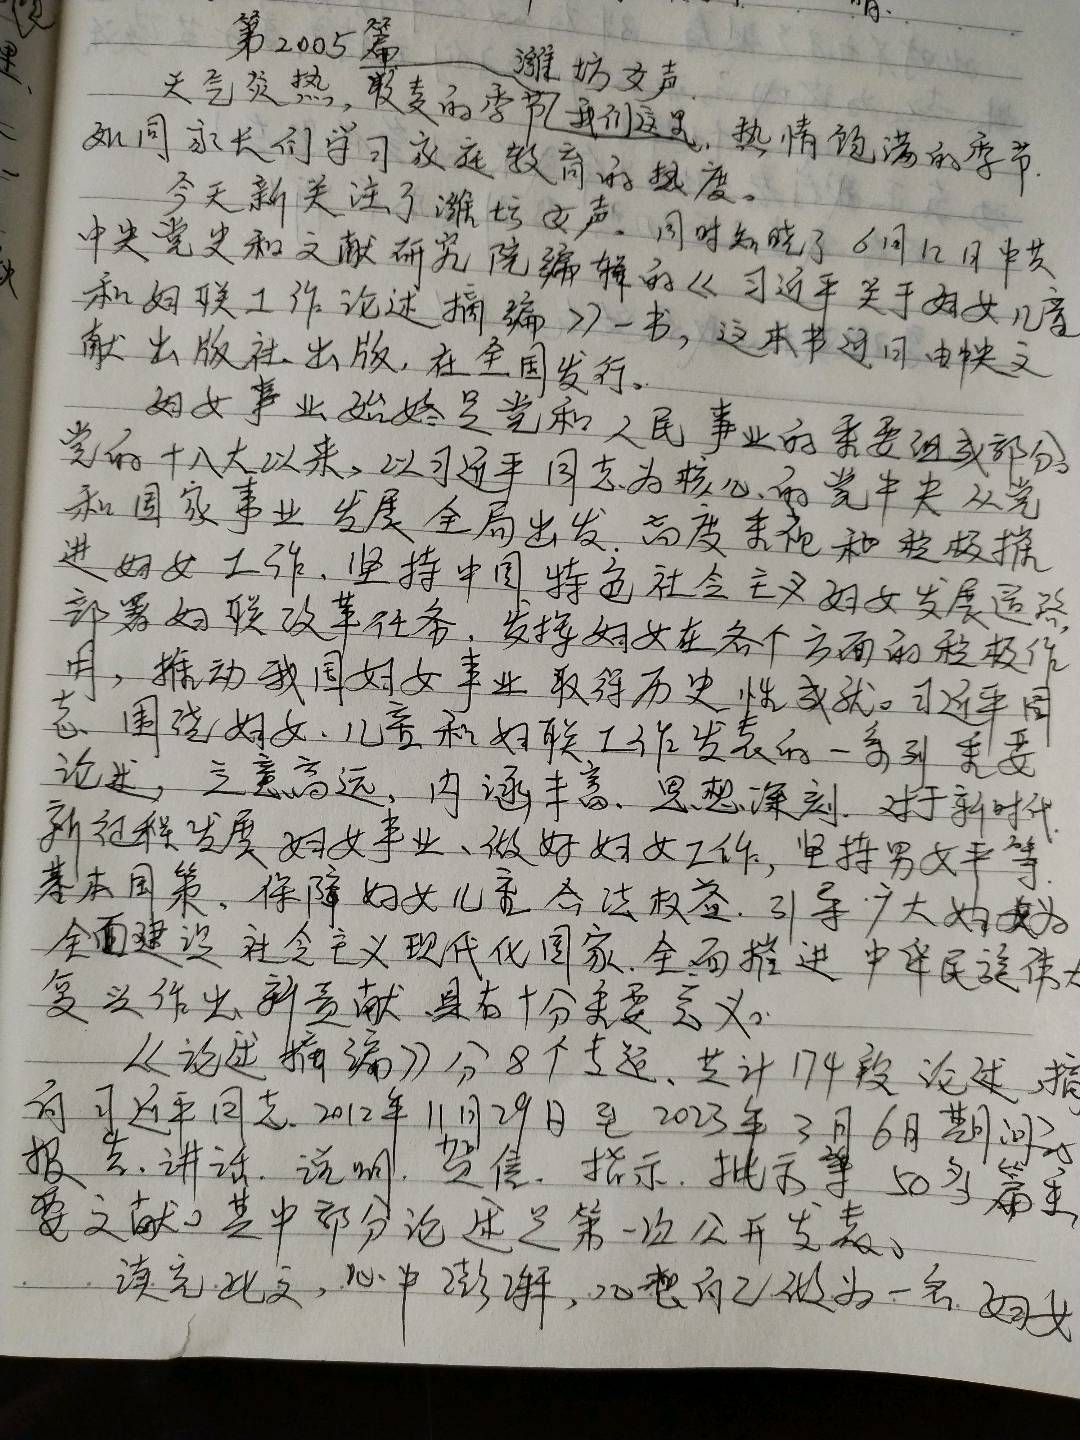 第2005篇 潍坊女声
天气炎热,收麦的季节我们这里,热情饱满的季节.
如同家长们学习家庭教育的热度。
今天新关注了潍坊女声。同时知晓了6月12日中共
中央党史和文献研究院编辑的《习近平关于妇女儿童
和妇联工作论述摘编》一书,这本书近日由中央文
献出版社出版,在全国发行。
妇女事业始终是党和人民事业的重要组成部分。
党的十八大以来,以习近平同志为核心的党中央从党
和国家事业发展全局出发.高度重视和积极推
进妇女工作.坚持中国特色社会主义妇女发展道路,
部署妇联改革任务.发挥妇女在各个方面的积极作
用,推动我国妇女事业取得历史性成就。习近平同
志围绕妇女.儿童和妇联工作发表的一系列重要
论述,立意高远,内涵丰富、思想深刻.对于新时代
新征程发展妇女事业、做好妇女工作,坚持男女平等
基本国策、保障妇女儿童合法权益.引导广大妇女为
全面建设社会主义现代化国家.全面推进中华民族伟大
复兴作出新贡献具有十分重要意义。
《论述摘编》分8个专题、共计174段论述,摘
自习近平同志2012年11月29日至2023年3月6日期间的
报告.讲话.说明.贺信.指示.批示等50多篇重
要文献。其中部分论述是第一次公开发表。
读完此文,心中澎湃,心想自己做为一名妇女